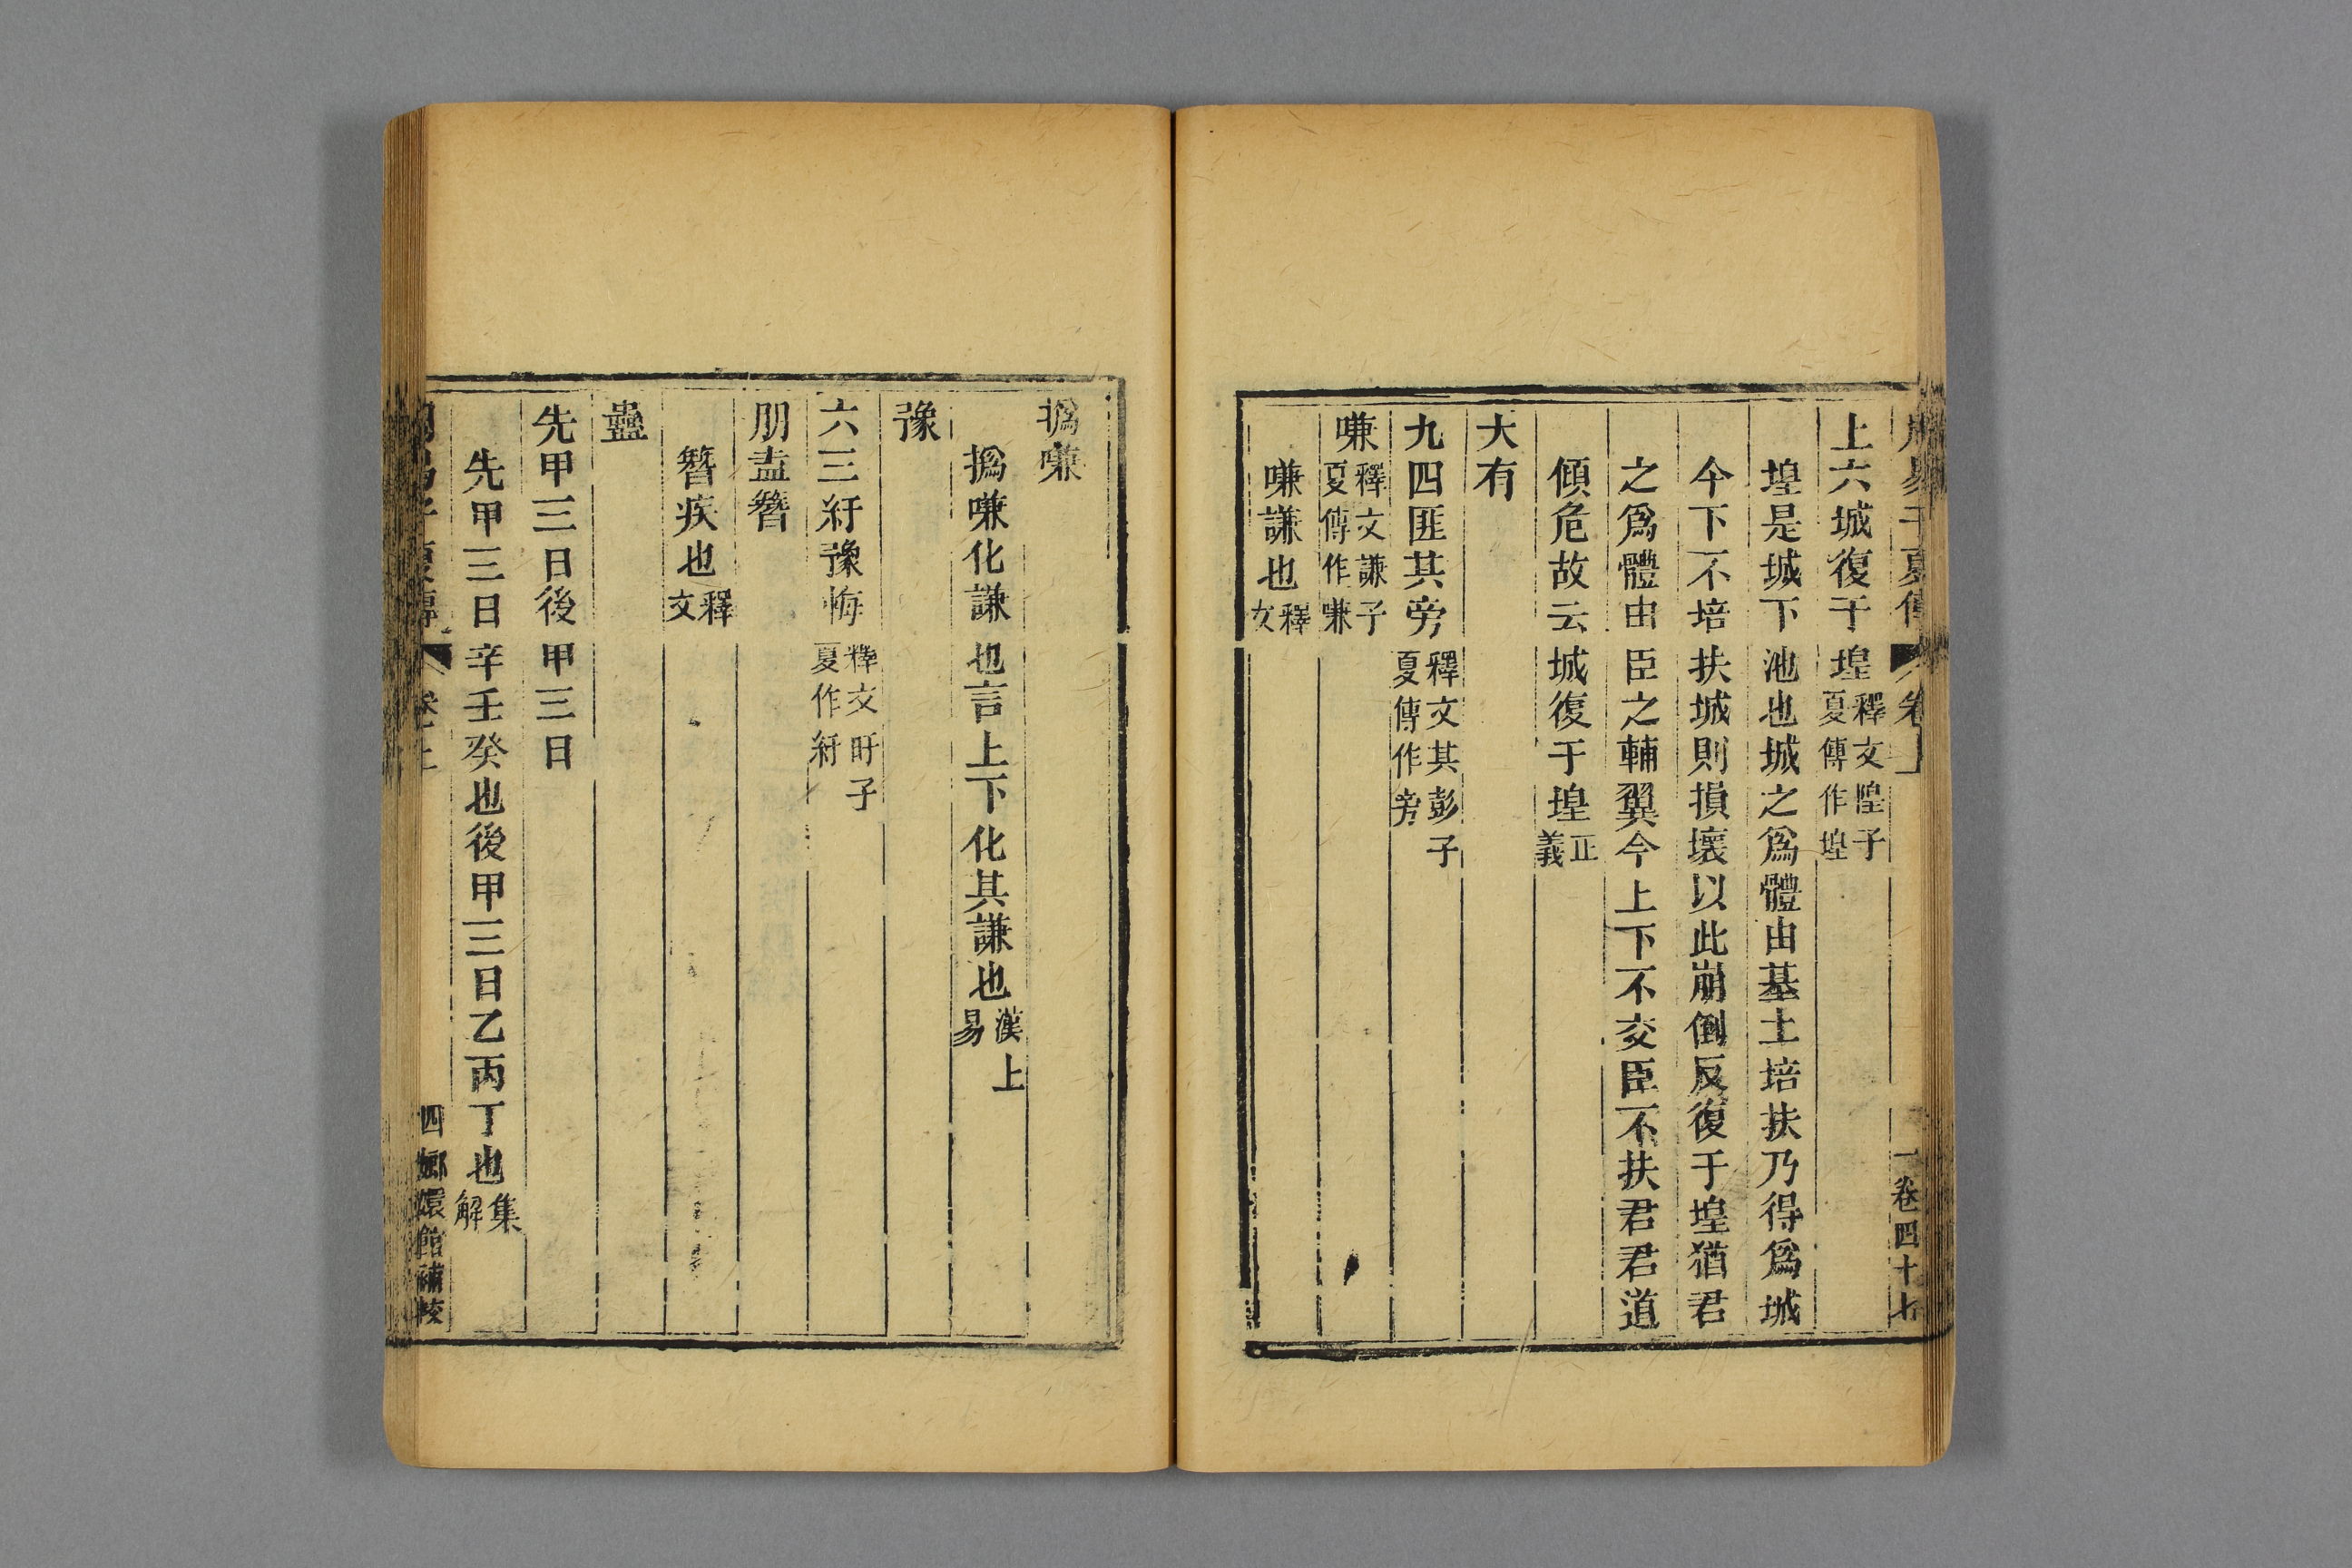 周易子夏傳 卷上 一 卷四十七
上六城復于堭釋文隍子夏傳作堭
堭是城下池也城之爲體由基土培扶乃得爲城
今下不培扶城則損壞以此崩倒反復于堭猶君
之爲體由臣之輔翼今上下不交臣不扶君君道
傾危故云城復于堭正義
大有
九四匪其旁釋文其彭子夏傳作旁
嗛釋文謙子夏傳作嗛
嗛謙也釋文
撝嗛
撝嗛化謙也言上下化其謙也漢上易
豫
六三紆豫悔釋文盱子夏作紆
朋盍簪
簪疾也釋文
蠱
先甲三日後甲三日
先甲三日辛壬癸也後甲三日乙丙丁也集解
周易子夏傳 卷上 四 嫏嬛館補校